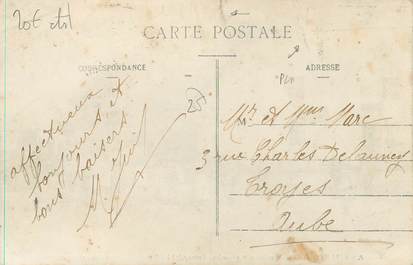 CARTE POSTALE
CORRESPONDANCE
ADRESSE
affectueux
bonjours et
bons baisers
Mr et Mme Marc
3 rue Charles Delaunay
Troyes
Aube